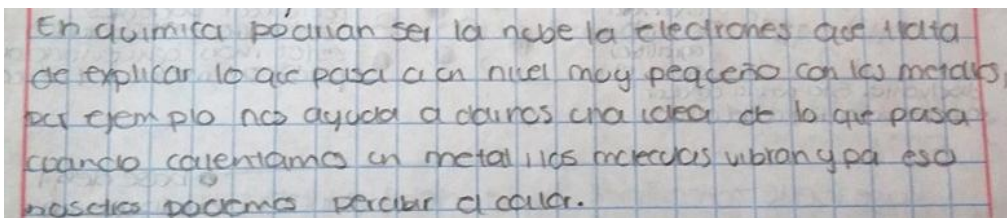 En química podrían ser la nube la electrones que trata
de explicar lo que pasa a un nivel muy pequeño con los metales,
por ejemplo nos ayuda a darnos una idea de lo que pasa
cuando calentamos un metal, las moleculas vibran y por eso
nosotros podemos percibir el calor.